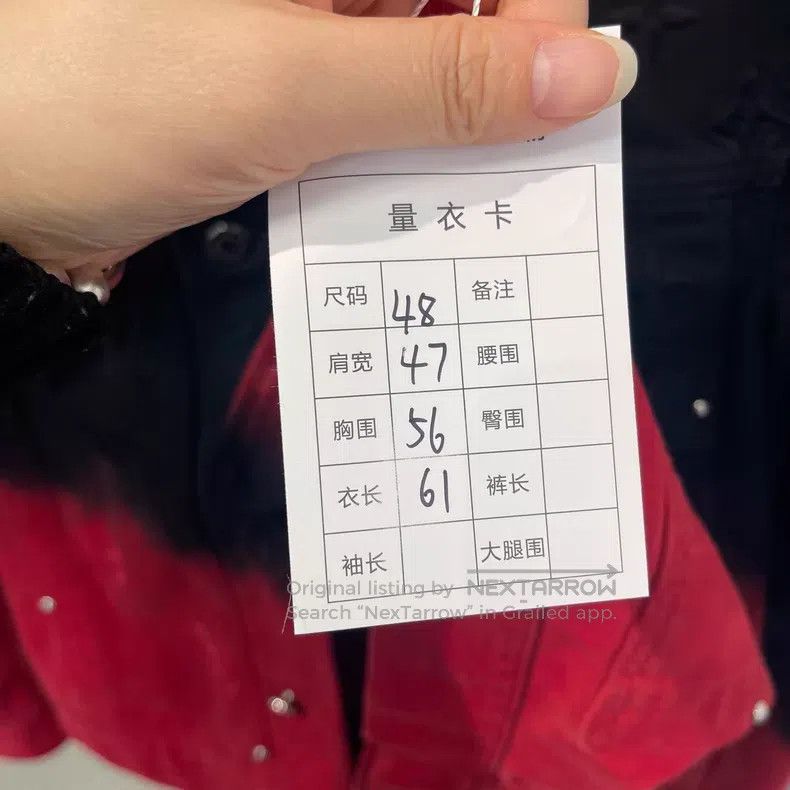 量衣卡
尺码 48 备注
肩宽 47 腰围
胸围 56 臀围
衣长 61 裤长
袖长 大腿围
Original listing by NEXTARROW
Search “NexTarrow” in Grailed app.